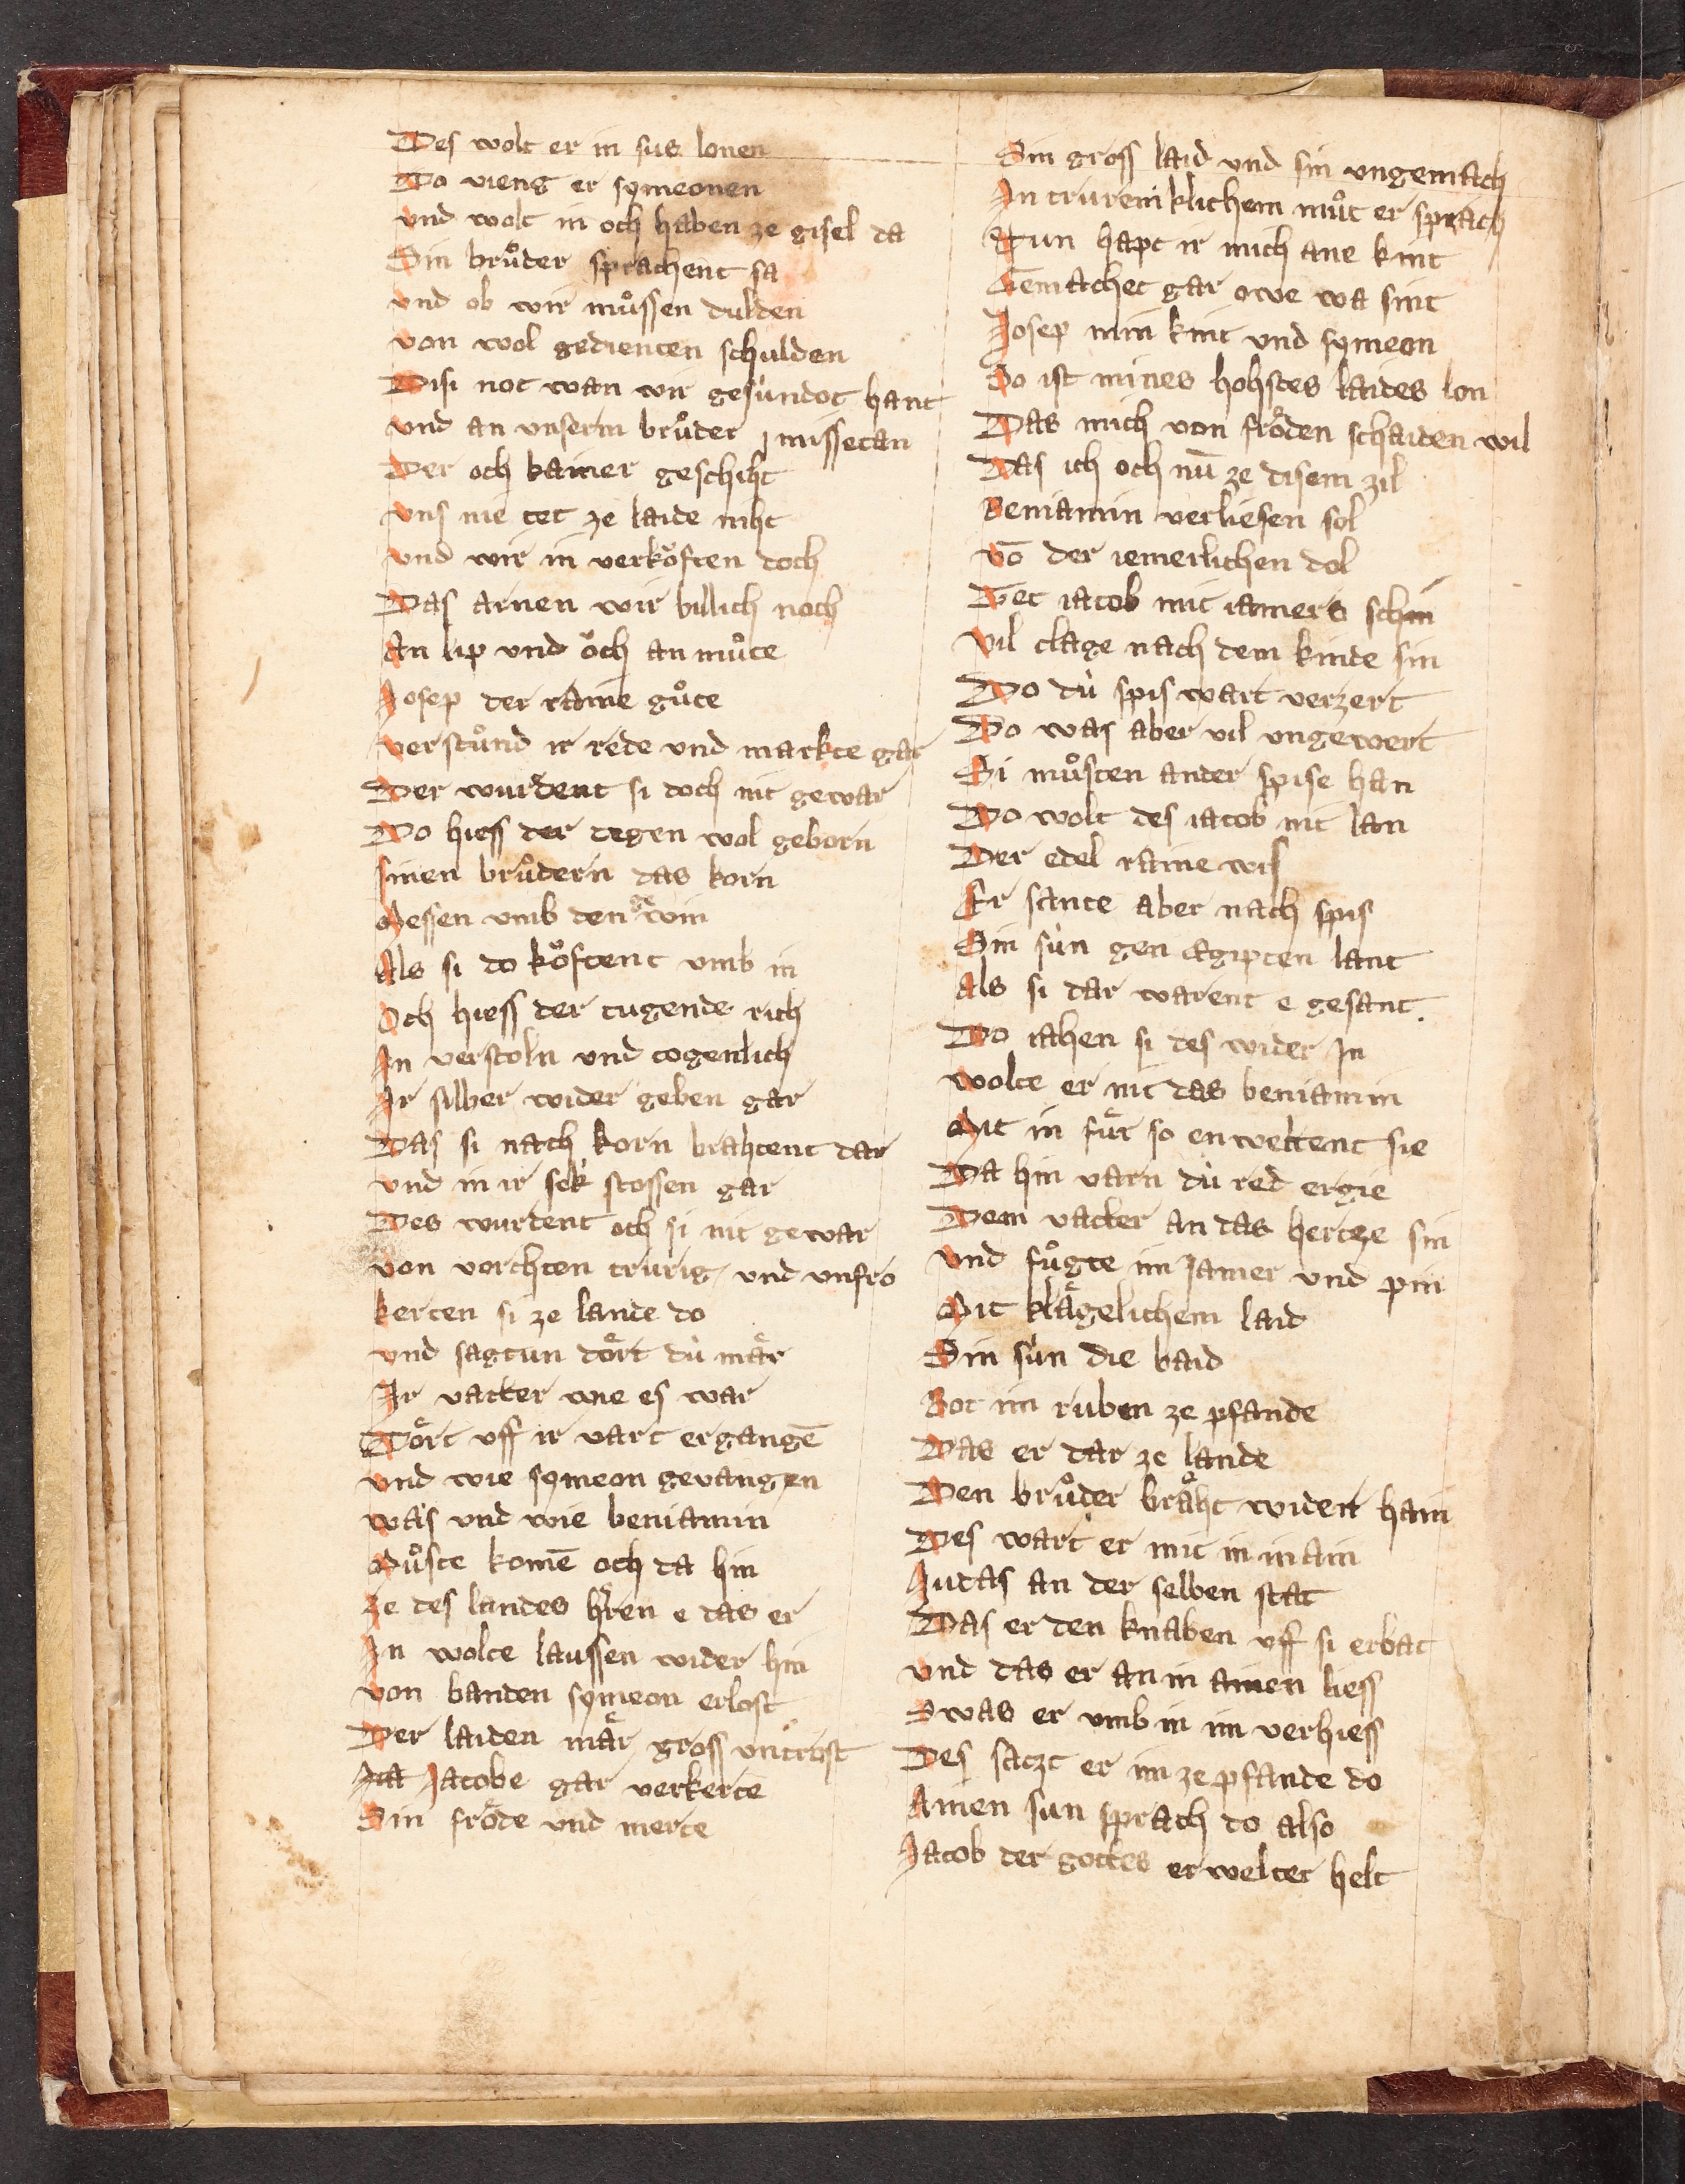 Des wolt er in sus lonen
Do vieng er symeonen
vnd wolt in och haben ze gisel da
Sin bruͦder sprachent sa
vnd ob wir muͦssen dulden
von wol gedienten schulden
Disi not wan wir gesúndot hant
vnd an vnserm bruͦder missetan
Der och kainer geschiht
vns nie tet ze laide niht
vnd wir in verkoͤften doch
Das arnen wir billich noch
An lip vnd oͤch an muͦte
Josep der raine guͦte
verstuͦnd ir rede vnd markte gar
Der wurdent si doch nit gewar
Do hiess der degen wol geborn
sinen bruͦdern das korn
Messen vmb den gewin
Als si do koͤftent vmb in
Och hiess der tugende rich
In verstoln vnd togenlich
Ir silber wider geben gar
Das si nach korn brahtent dar
vnd in ir sek stossen gar
Des wurdent och si nit gewar
von vorchten trurig vnd vnfro
kerten si ze lande do
vnd sagtun doͤrt dú maͤr
Ir vatter wie es war
Doͤrt vff ir vart ergangē
vnd wie symeon gevangen
was vnd wie beniamin
Muͦste komē och da hin
ze des landes hͬren e das er
In wolte laussen wider hin
von banden symeon erlost
Der laiden maͤr gross vntrost
Jacobe gar verkerte
Sin froͤde vnd merte
Sin gross laid vnd sin vngemach
In trureniklichem muͦt er sprach
Nun hapt ir mich ane kint
Gemachet gar owe wa sint
Josep min kint vnd symeon
So ist mines hohstes laides lon
Das mich von froͤden schaiden wil
Das ich och nū ze disem zil
Beniamin verliesen sol
vō der iemerlichen dol
Tet iacob mit iamers schin
vil clage nach dem kinde sin
Do dú spis wart verzert
Do was aber vil vngewert
Si muͦsten ander spise han
Do wolt des iacob nit lan
Der edel raine wis
Er sante aber nach spis
Sin sún gen egipten lant
Als si dar warent e gesant.
Do iahen si des wider In
wolte er nit das beniamin
Mit in fuͤr so en weltent sie
Da hin varn dú red ergie
Dem vatter an das hertze sin
vnd fuͦgte im Jamer vnd pin
Mit klaͤgelichem laid
Sin sún die baid
Bot im ruben ze pfande
Das er dar ze lande
Den bruͦder braͤht wider hain
Des wart er mit in inain
Judas an der selben stat
Das er den knaben vff si erbat
vnd das er an in ainen liess
Swas er vmb in im verhiess
Des satzt er im ze pfande do
Ainen sun sprach do also
Jacob der gottes erwelter helt